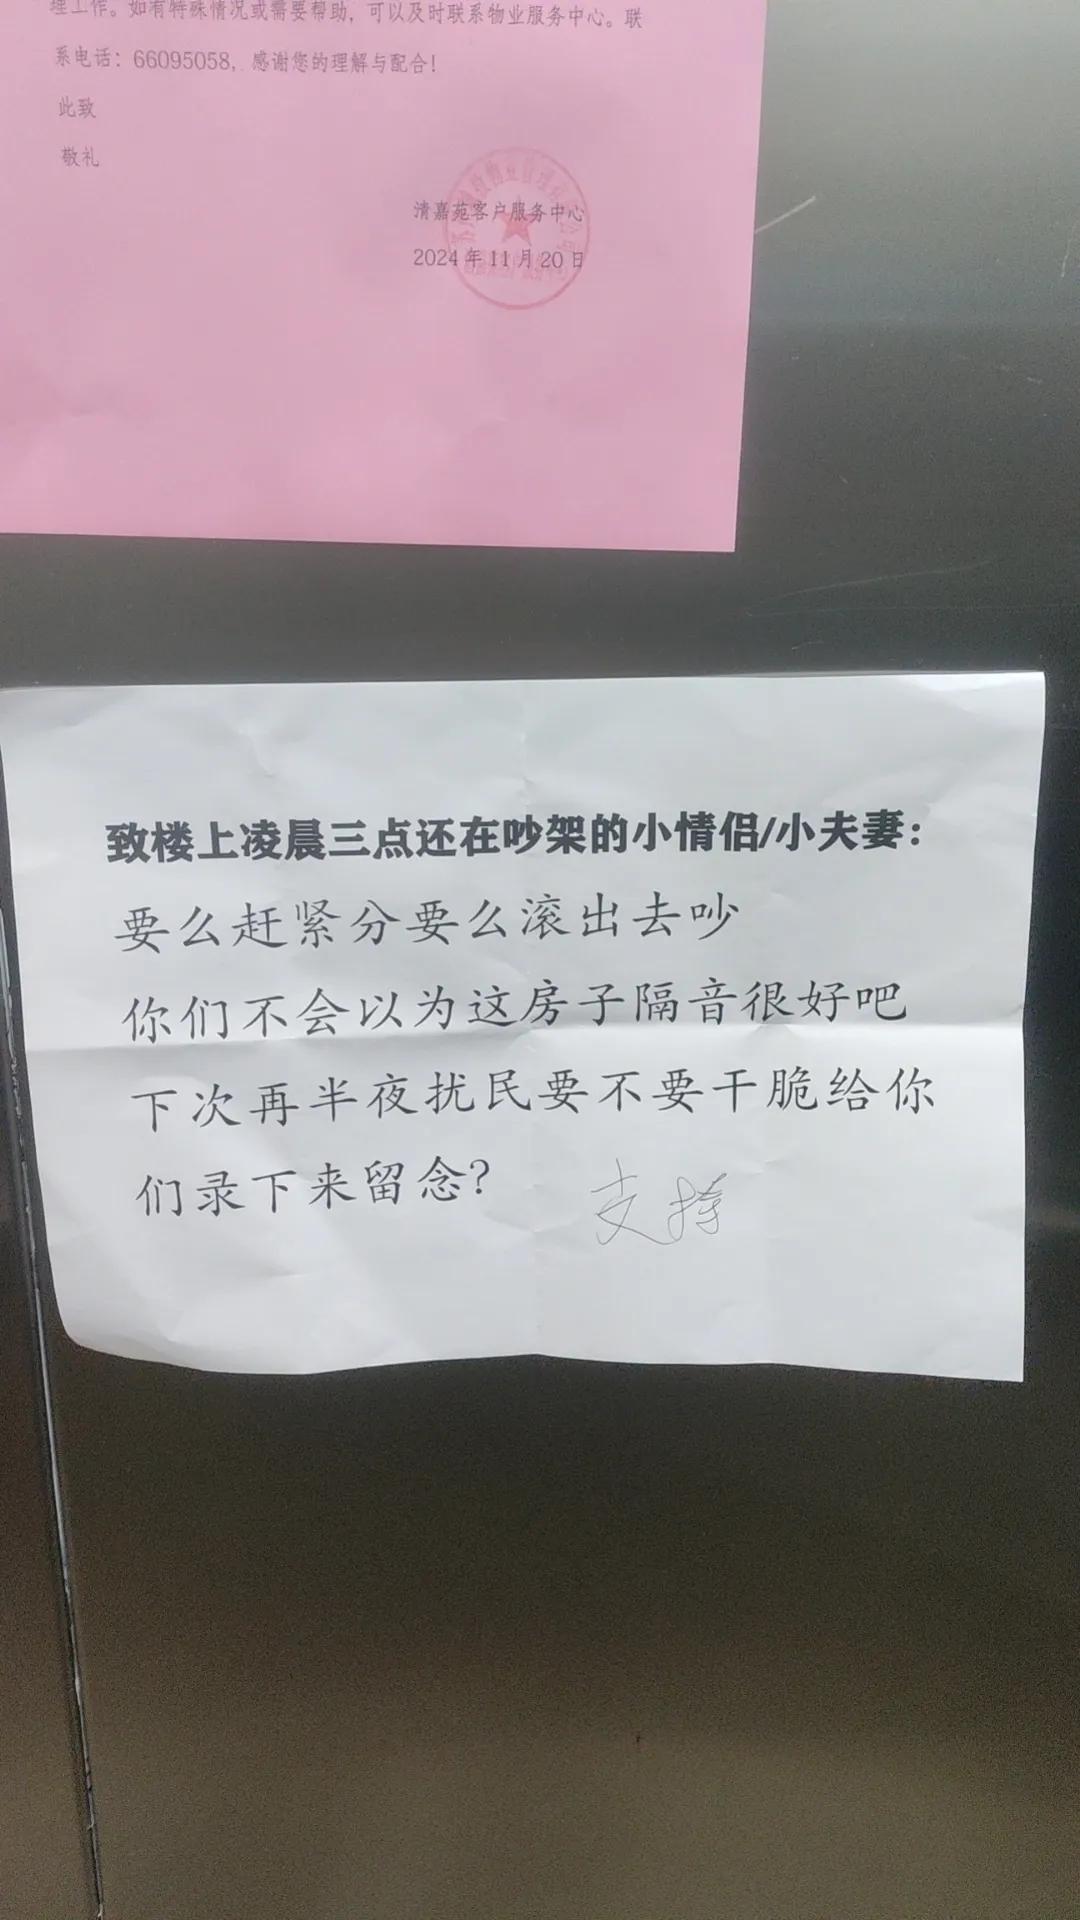 理工作。如有特殊情况或需要帮助，可以及时联系物业服务中心。联
系电话：66095058，感谢您的理解与配合！
此致
敬礼
清嘉苑客户服务中心
2024年11月20日
致楼上凌晨三点还在吵架的小情侣/小夫妻：
要么赶紧分要么滚出去吵
你们不会以为这房子隔音很好吧
下次再半夜扰民要不要干脆给你
们录下来留念？
支持